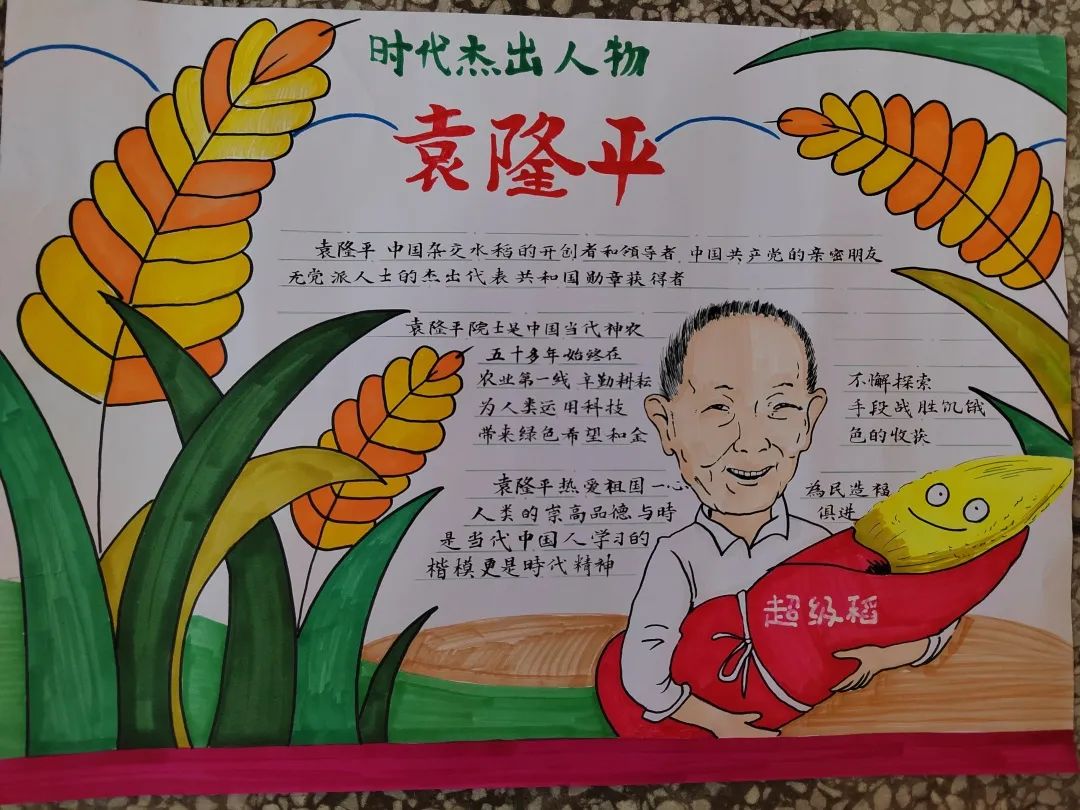 时代杰出人物
袁隆平
袁隆平 中国杂交水稻的开创者和领导者 中国共产党的亲密朋友
无党派人士的杰出代表 共和国勋章获得者
袁隆平院士是中国当代神农
五十多年始终在
农业第一线 辛勤耕耘 不懈探索
为人类运用科技 手段战胜饥饿
带来绿色希望和金 色的收获
袁隆平热爱祖国一心 為民造福
人类的崇高品德与時 俱进
是当代中国人学习的
楷模更是時代精神
超级稻